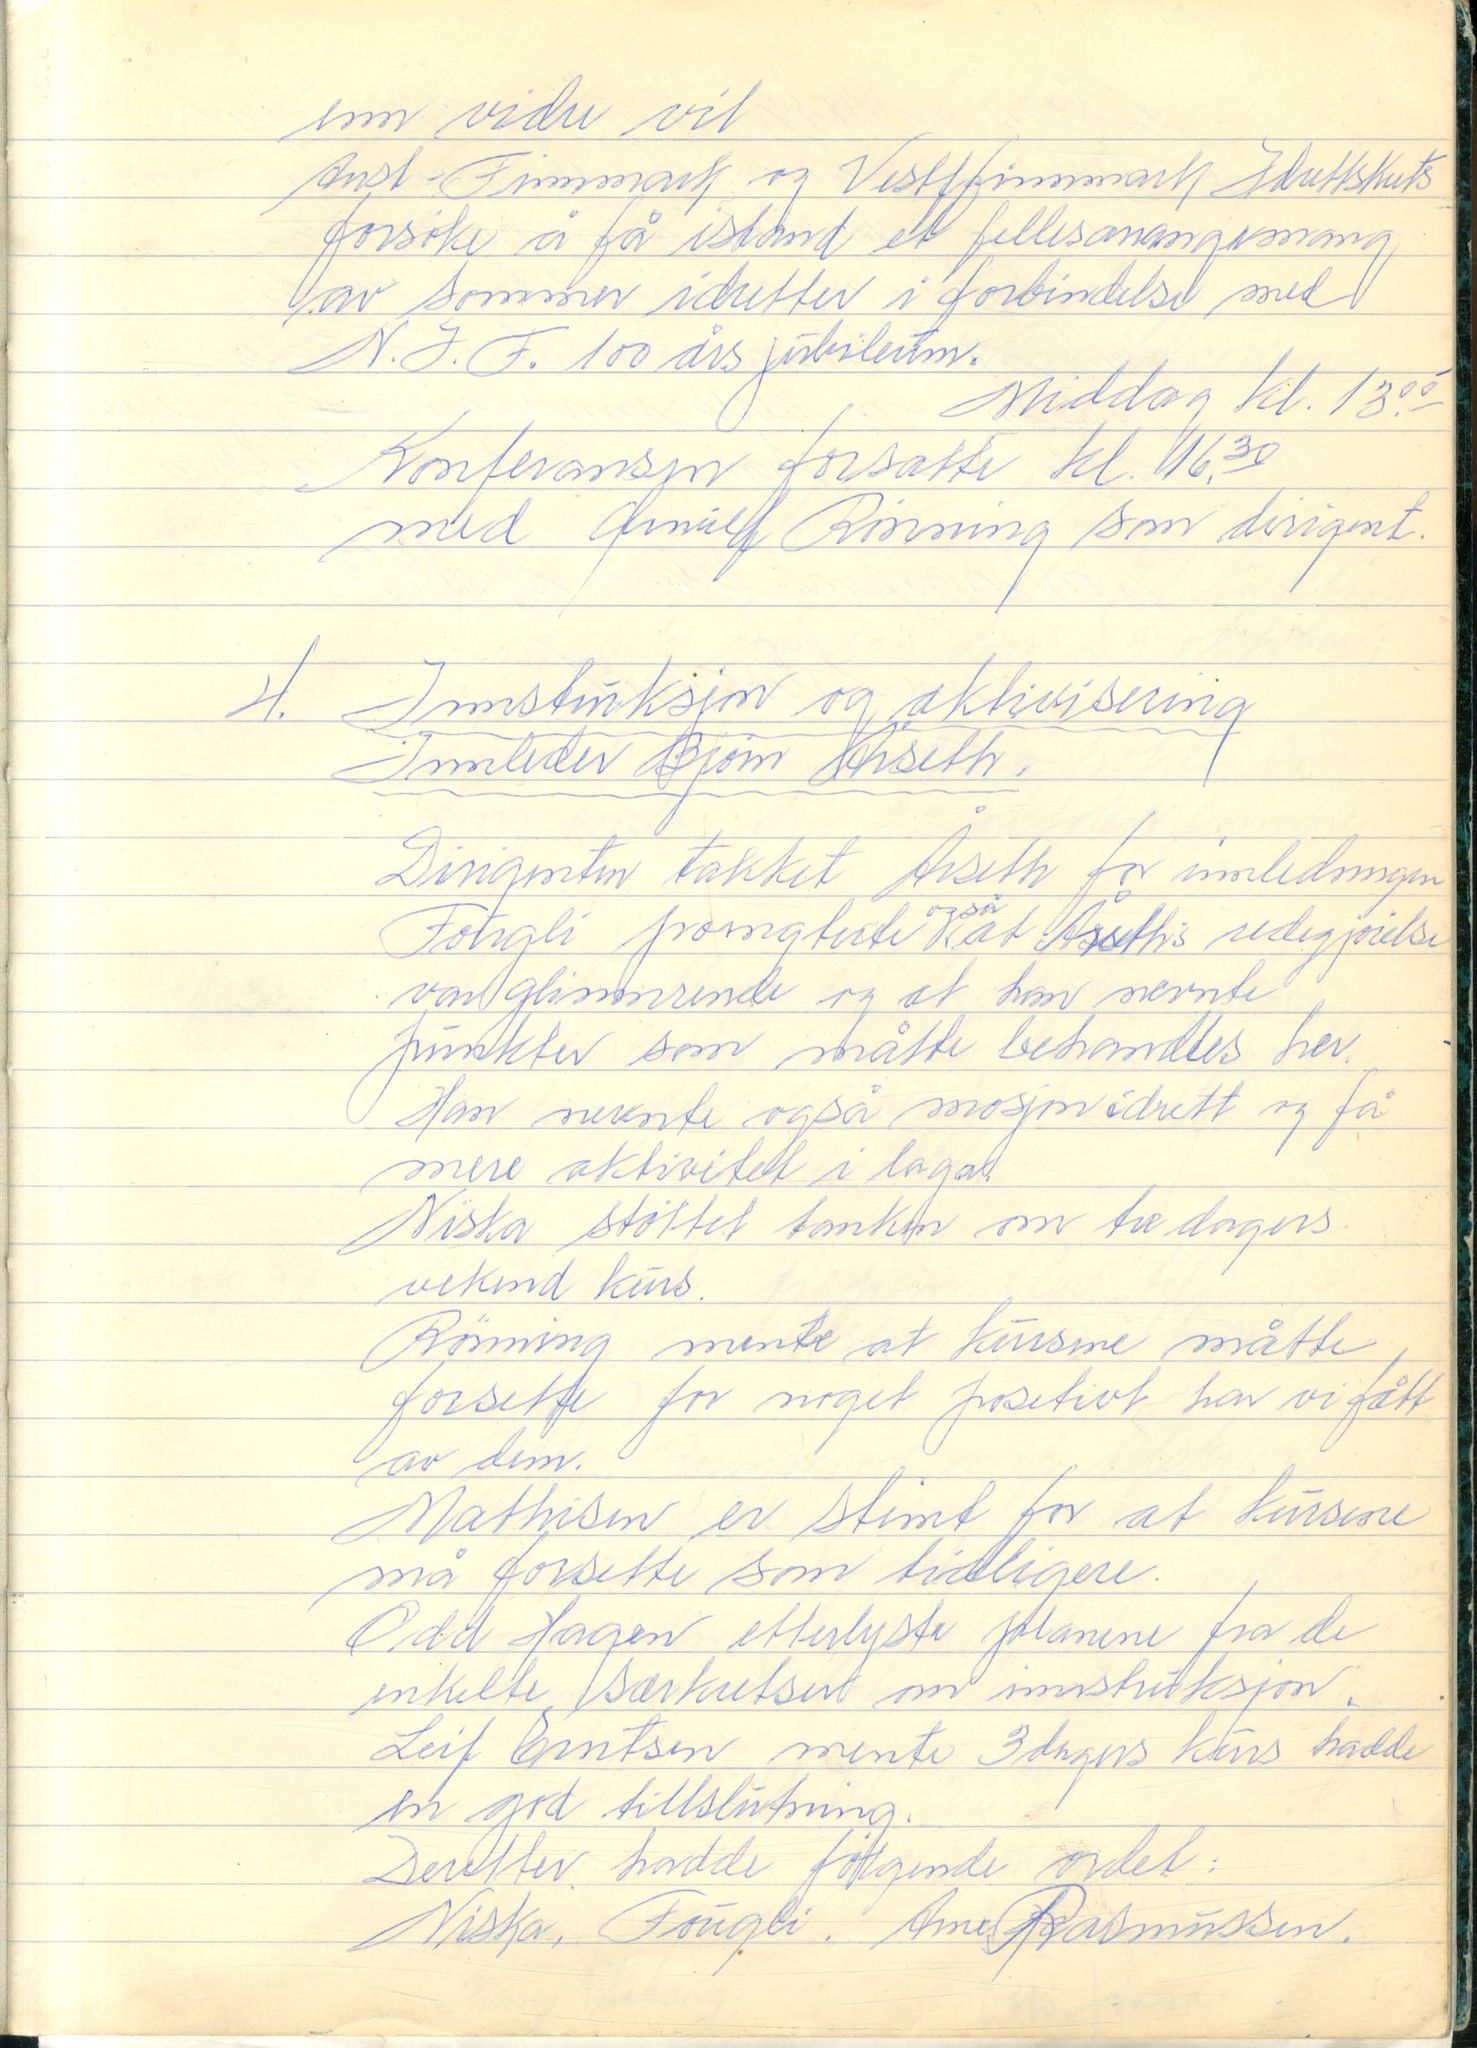 enn vidre vil
Aust-Finnmark og Vestfinnmark Idrettskrets
forsöke å få istand et fellesarrangemang
av sommer idretter i forbindelse med
N.I.F. 100 års jubileum.
Middag kl. 13.00
Konferansen forsatte kl. 16.30
med Arnulf Rönning som dirigent.
4. Innstruksjon og aktivisering
Innleder Bjørn Åseth.
Dirigenten takket Åseth for innledningen
Fougli poengterte også at Åseth's redegjörelse
var glimmrende og at han nevnte
punkter som måtte behandles her.
Han nevnte også mosjon idrett og få
mere aktivitet i laga.
Niska stöttet tanken om tre dagers
vekend kurs.
Rönning mente at kursene måtte
forsette for noget posetivt har vi fått
av dem.
Mathisen er stemt for at kursene
må forsette som tidligere.
Odd Hagen etterlyste planene fra de
enkelte særkretser om innstruksjon.
Leif Erntsen mente 3 dagers kurs hadde
en god tillslutning.
Deretter hadde fölgende ordet:
Niska, Fougli. Arne Rasmussen.